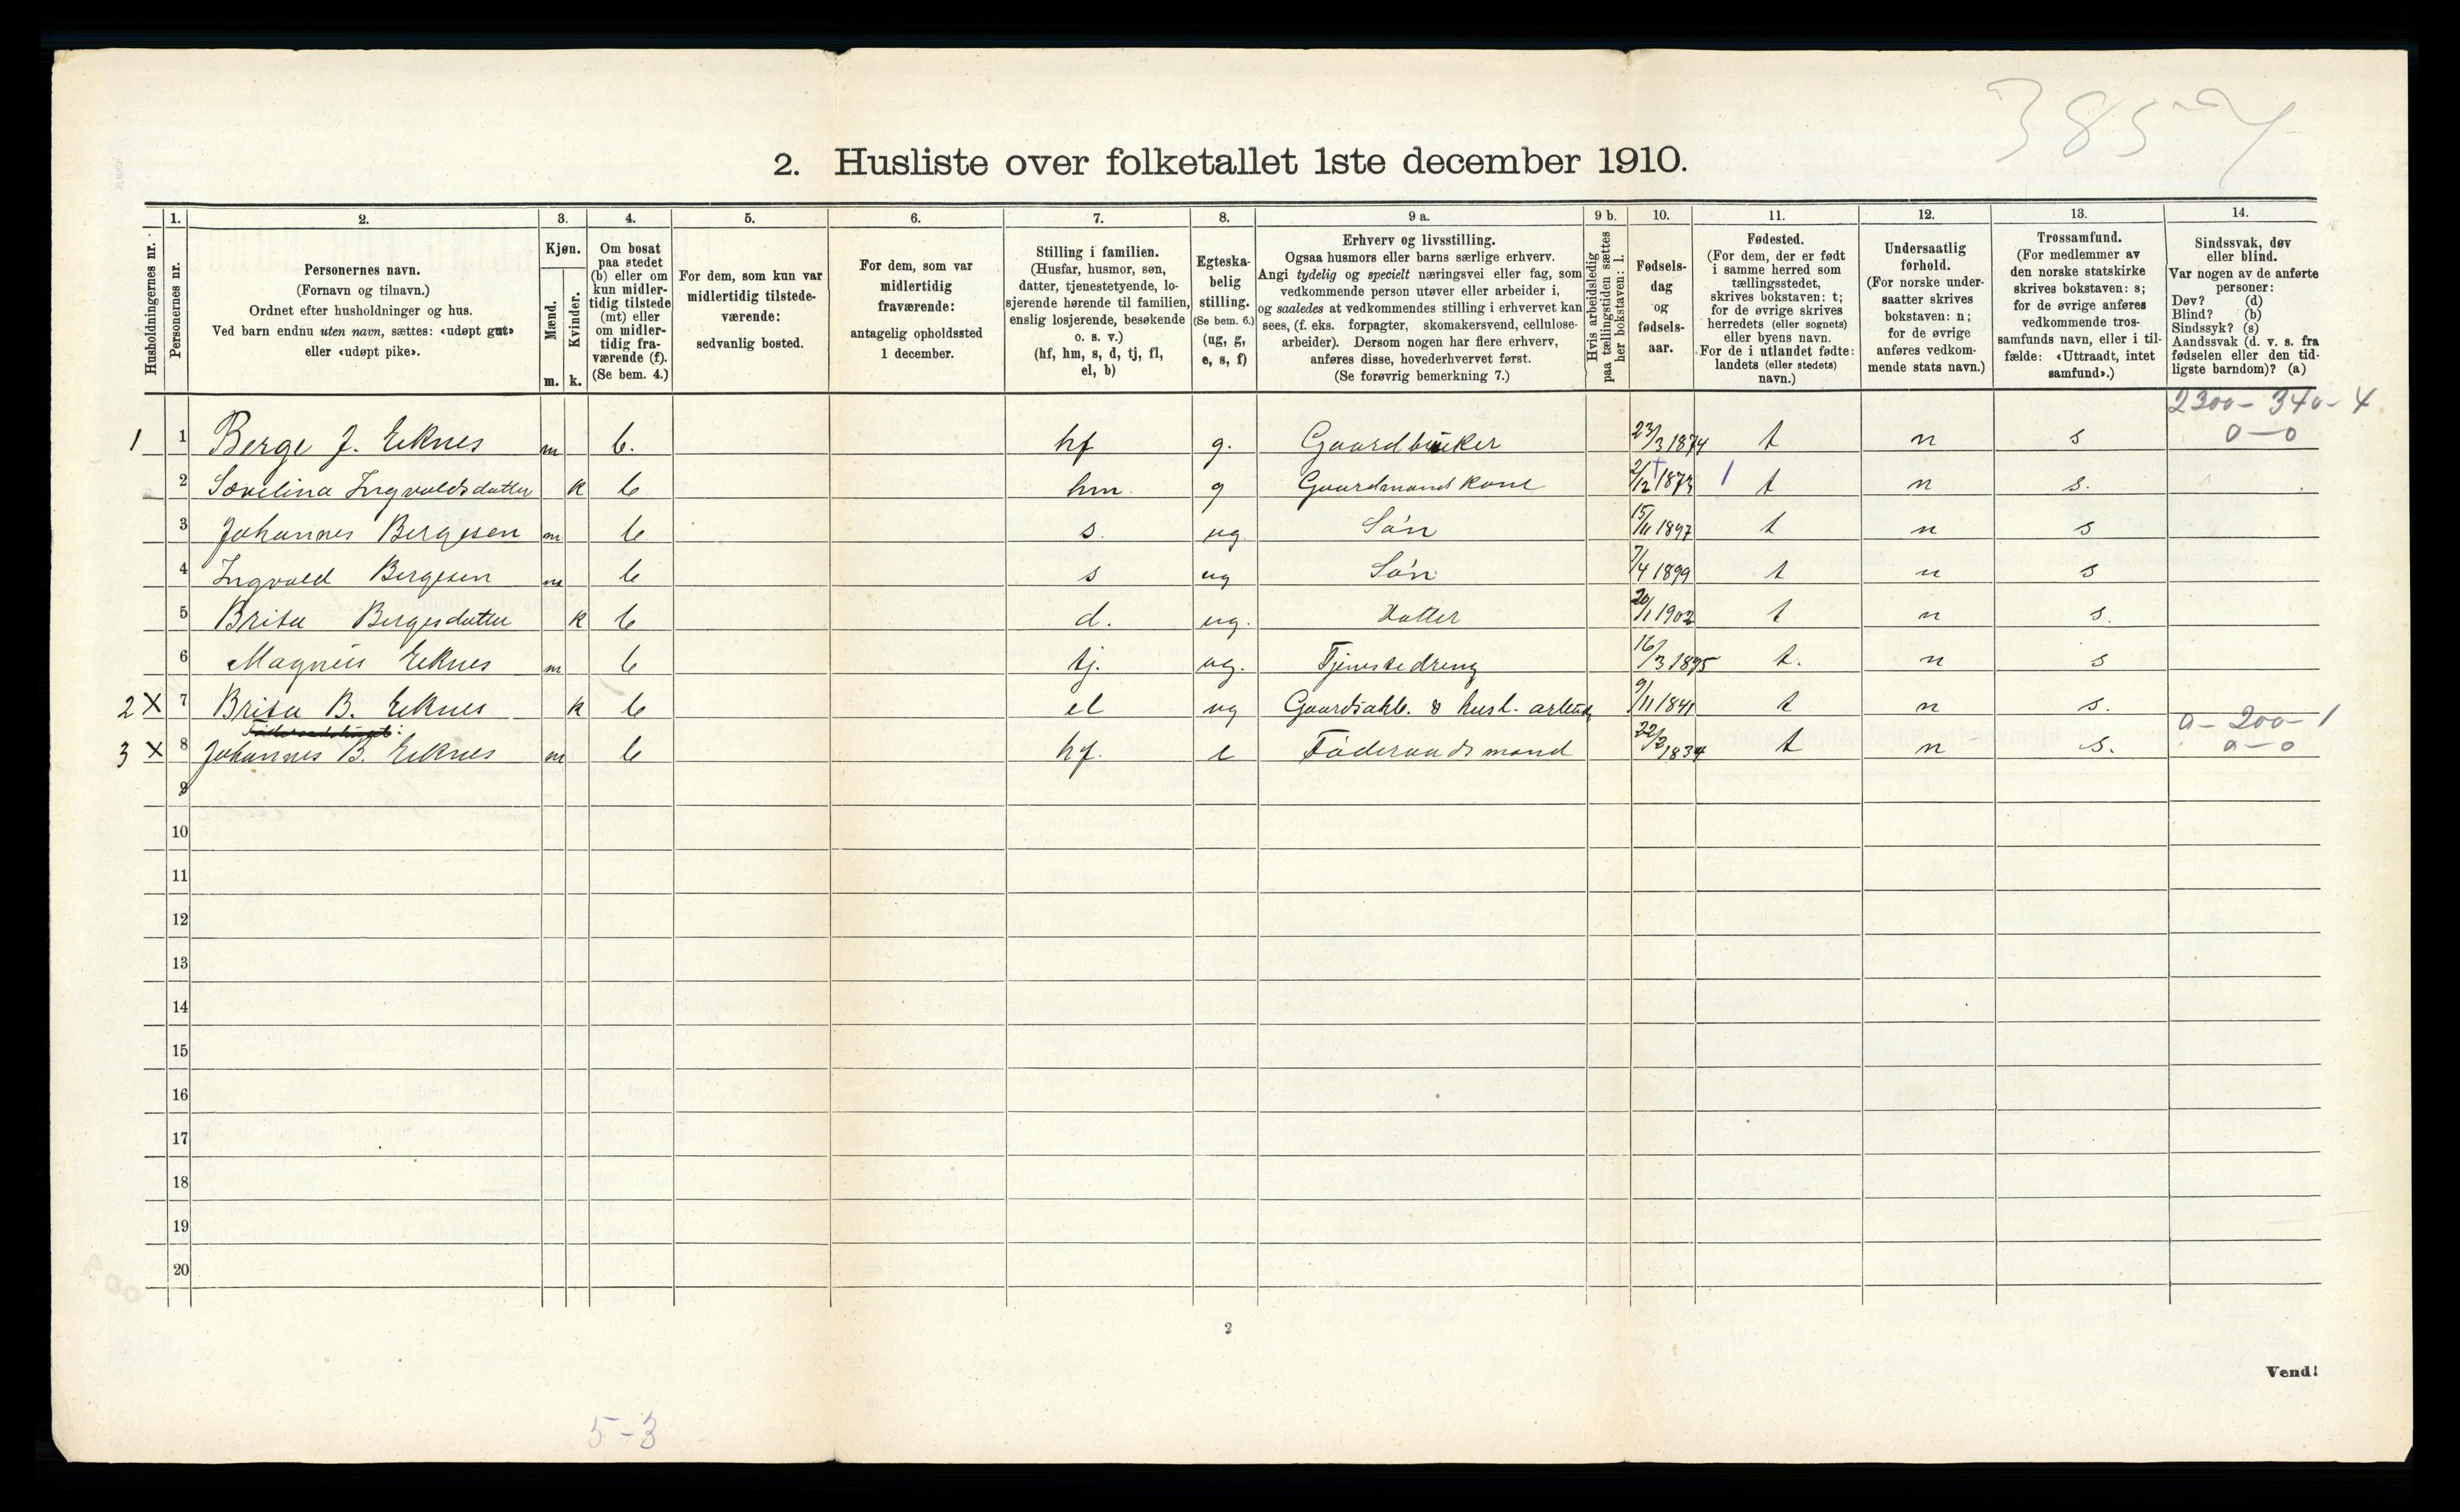 3857
2. Husliste over folketallet 1ste december 1910.
Husholdningernes nr.
1.
Personernes nr.
2.
Personernes navn.
(Fornavn og tilnavn.)
Ordnet efter husholdninger og hus.
Ved barn endnu uten navn, sættes: «udøpt gut»
eller «udøpt pike».
3.
Kjøn.
Mænd.
Kvinder.
m. k.
4.
Om bosat
paa stedet
(b) eller om
kun midler-
tidig tilstede
(mt) eller
om midler-
tidig fra-
værende (f).
(Se bem. 4.)
5.
For dem, som kun var
midlertidig tilstede-
værende:
sedvanlig bosted.
6.
For dem, som var
midlertidig
fraværende:
antagelig opholdssted
1 december.
7.
Stilling i familien.
(Husfar, husmor, søn,
datter, tjenestetyende, lo-
sjerende hørende til familien,
enslig losjerende, besøkende
o. s. v.)
(hf, hm, s, d, tj, fl,
el, b)
8.
Egteska-
belig
stilling.
(Se bem. 6.)
(ug, g,
e, s, f)
9 a.
Erhverv og livsstilling.
Ogsaa husmors eller barns særlige erhverv.
Angi tydelig og specielt næringsvei eller fag, som
vedkommende person utøver eller arbeider i,
og saaledes at vedkommendes stilling i erhvervet kan
sees, (f. eks. forpagter, skomakersvend, cellulose-
arbeider). Dersom nogen har flere erhverv,
anføres disse, hovederhvervet først.
(Se forøvrig bemerkning 7.)
9 b.
Hvis arbeidsledig
paa tællingstiden sættes
her bokstaven: l.
10.
Fødsels-
dag
og
fødsels-
aar.
11.
Fødested.
(For dem, der er født
i samme herred som
tællingsstedet,
skrives bokstaven: t;
for de øvrige skrives
herredets (eller sognets)
eller byens navn.
For de i utlandet fødte:
landets (eller stedets)
navn.)
12.
Undersaatlig
forhold.
(For norske under-
saatter skrives
bokstaven: n;
for de øvrige
anføres vedkom-
mende stats navn.)
13.
Trossamfund.
(For medlemmer av
den norske statskirke
skrives bokstaven: s;
for de øvrige anføres
vedkommende tros-
samfunds navn, eller i til-
fælde: «Uttraadt, intet
samfund».)
14.
Sindssvak, døv
eller blind.
Var nogen av de anførte
personer:
Døv? (d)
Blind? (b)
Sindssyk? (s)
Aandssvak (d. v. s. fra
fødselen eller den tid-
ligste barndom)? (a)
2300 - 340 - 4
0 - 0
1 1 Berge J. Eiknes m b. hf g. Gaardbruker 23/3 1874 t n s
2 Sævelina Ingvaldsdatter k b hm. g Gaardmandskone 2/12 1873 t n s.
3 Johannes Bergesen m b s. ug. Søn 15/11 1897 t n s
4 Ingvald Bergesen m b s ug Søn 7/4 1899 t n s
5 Brita Bergesdatter k b d. ug. Datter 20/1 1902 t n s.
6 Magnus Eiknes m b tj. ug. Tjenestedreng 16/3 1895 t. n s
2 X 7 Brita B. Eiknes k b el ug Gaards & husl. 9/11 1841 t n s.
0 - 200 - 1
3 X 8 Johannes B. Eiknes m b hf. e Føderaadsmand 22/2 1834 t n s. 0 - 0
9
10
11
12
13
14
15
16
17
18
19
20
2
Vend!
5-3